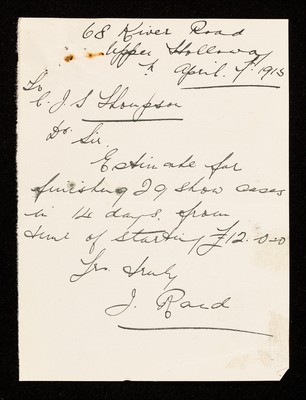 68 River Road
Upper Holloway
N April 7th 1913
To
C. J. S Thompson
Dr Sir.
Estimate for
finishing 29 show cases
in 14 days. from
time of starting £12.0.0
Yrs truly
J.